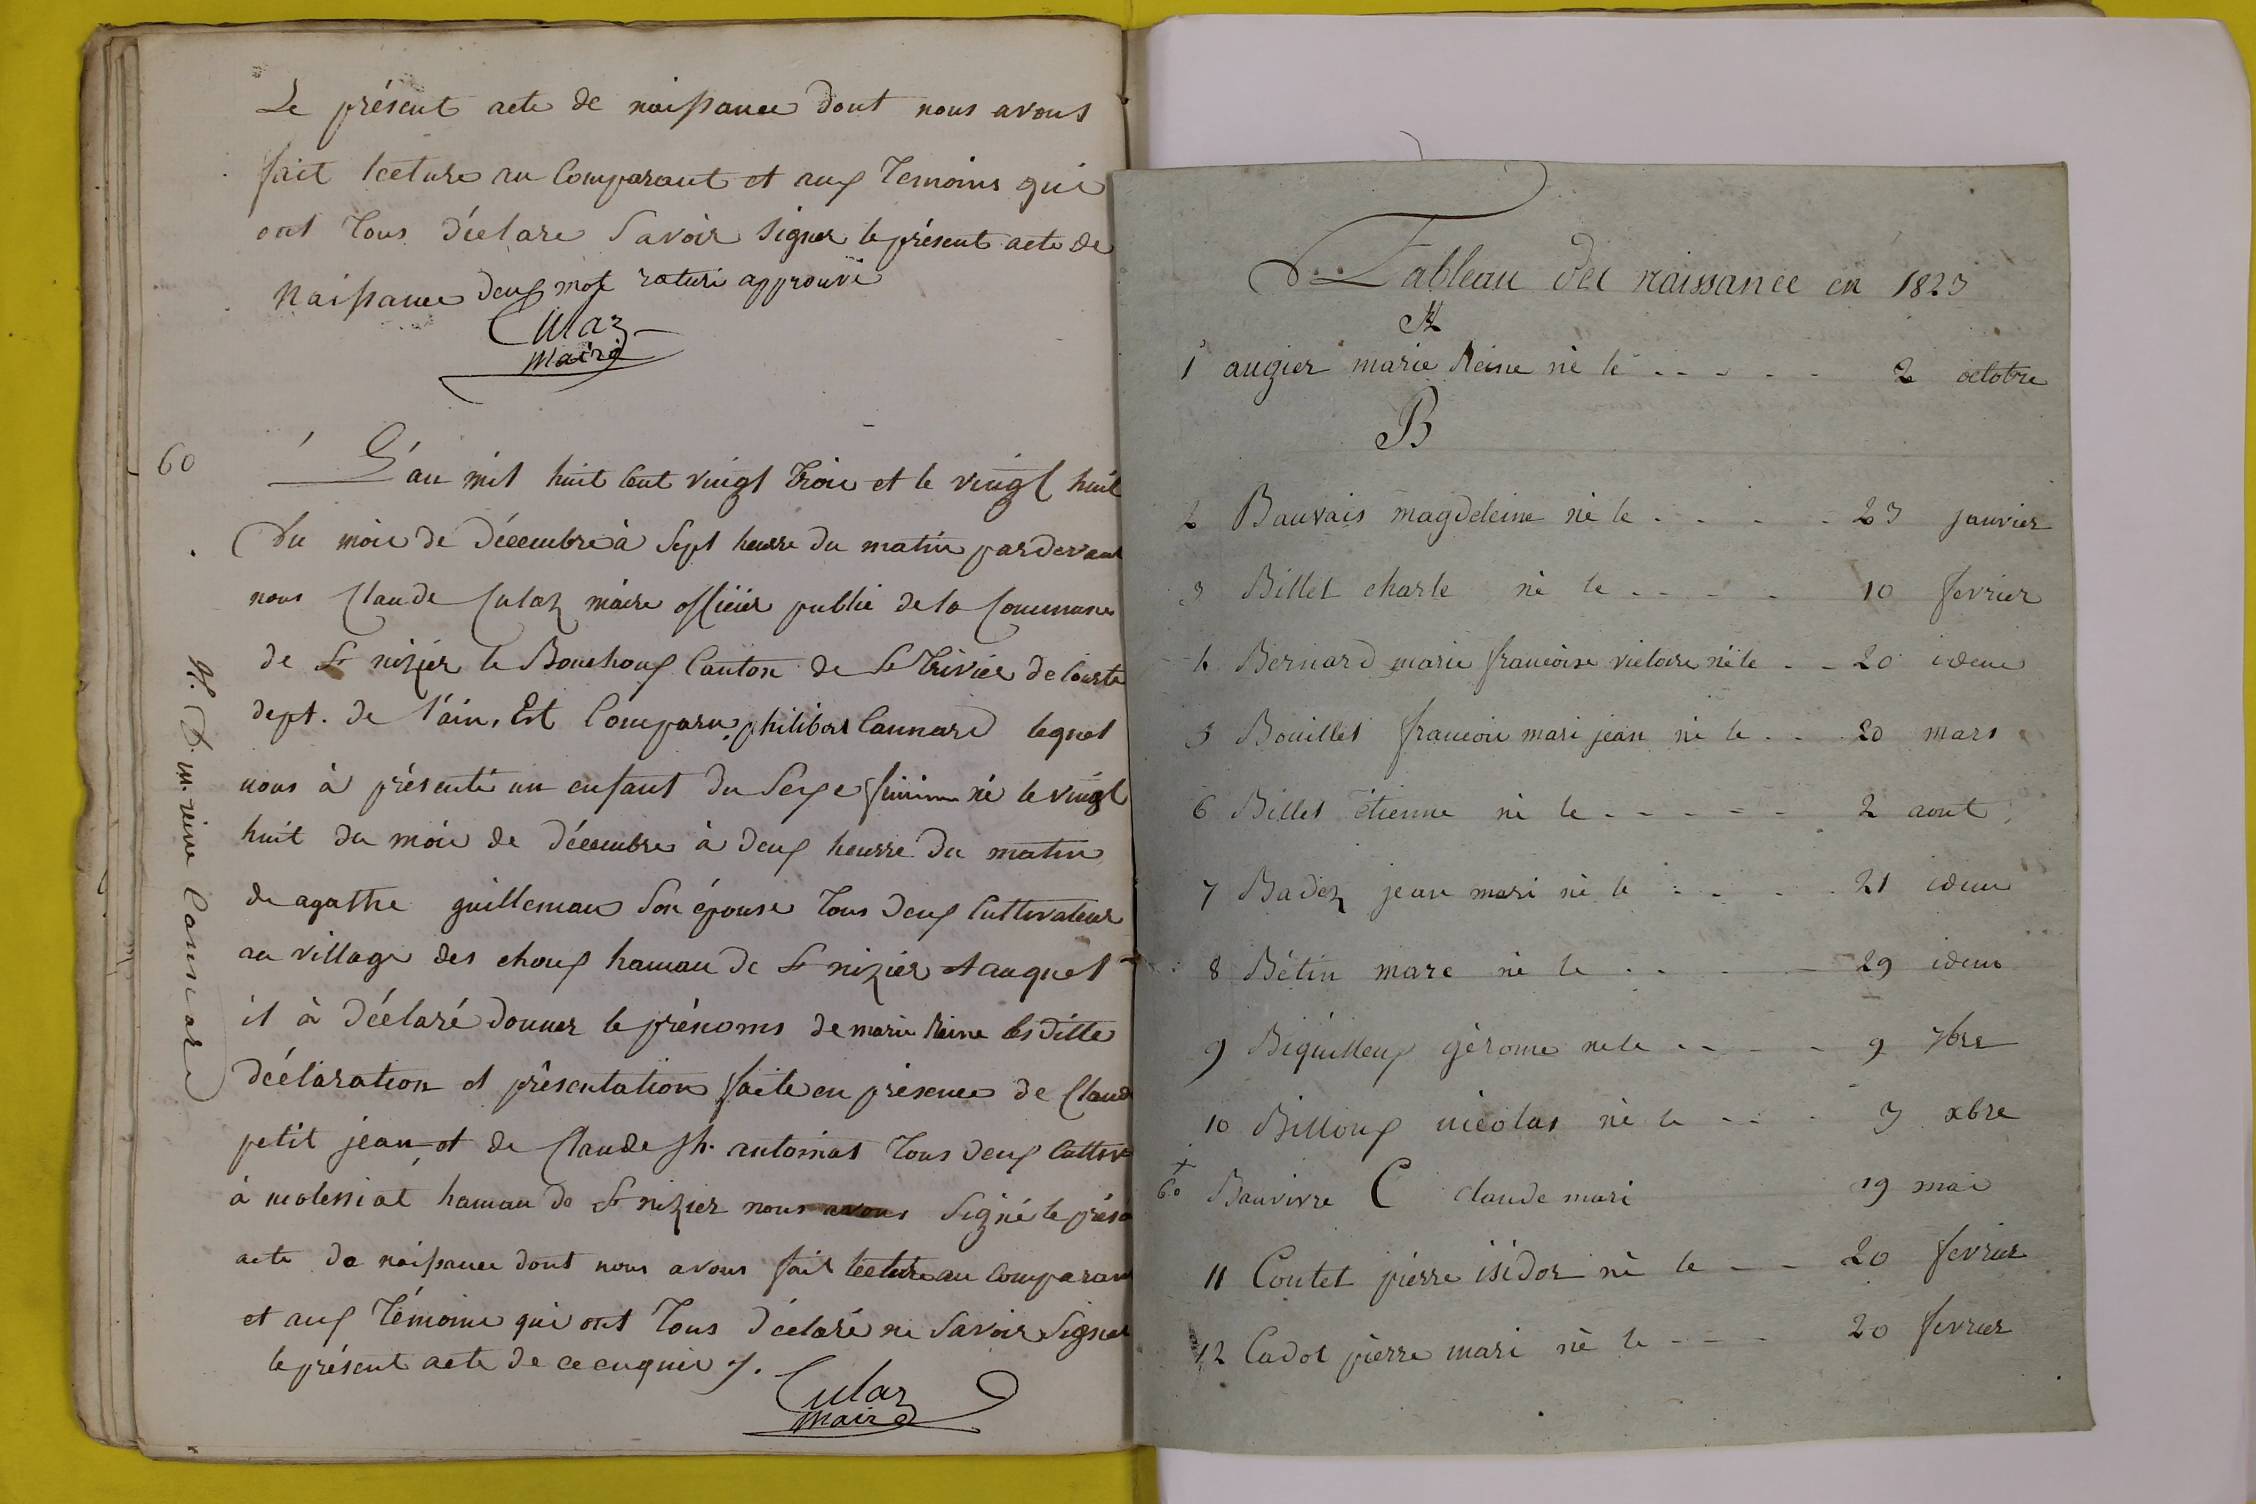 Le présent acte de naissance dont nous avons
fait lecture au Comparant et aux Temoins qui
ont Tous déclare Savoir signer le présent acte de
Naissance deux mot raturé approuvé
Culaz
Maire
60
L'an mil huit Cent vingt Trois et le vingt huit
Du mois de Décembre à Sept heurre du matin pardevant
nous Claude Culaz maire officier public de la Commune
de St nizier le Bouchoux Canton de St Trivier de Courte
dept. de l'ain, Est Comparu philibert Cannard lequel
nous à présenté un enfant du Sexe né le vingt
huit du mois de décembre à deux heurre du matin
de agathe guillemau Son épouse Tous deux Cultivateur
au village des choux hamau de St nizier et auquel
il à déclaré donner le prénoms de marie Reine les ditte
déclaration et présentation faite en présence de Claud
petit jean et de Claude Jh. antoinat Tous deux Cultiv
à molessiat hamau de St nizier nous avons Signé le prés
acte de naissance dont nous avons fait lecture au Comparan
et aux Témoins qui ont Tous déclaré ne Savoir Signer
le présent acte de ce enquis ./.
Culaz
Maire
N. D. m. reine Cannard
Tableau des naissance en 1823
A
1 augier marie Reine né le - - - - - 2 octobre
B
2 Bauvais magdeleine né le - - - - 23 janvier
3 Billet charle né le - - - - 10 fevrier
4 Bernard marie francoise victoire né le - - 20 idem
5 Bouillet francois mari jean né le - - 20 mars
6 Billet étienne né le - - - - - 2 aout
7 Badez jean mari né le - - - - 21 idem
8 Bétin marc né le - - - - 29 idem
9 Biguilleux gèrome né le - - - - 9 7bre
10 Billoux nicolas né le - - - 3 xbre
+
60 Bauvivre C claude mari 19 mai
11 Coutet pierre isidor né le - - 20 fevrier
12 Cadot pierre mari né le - - - 20 fevrier